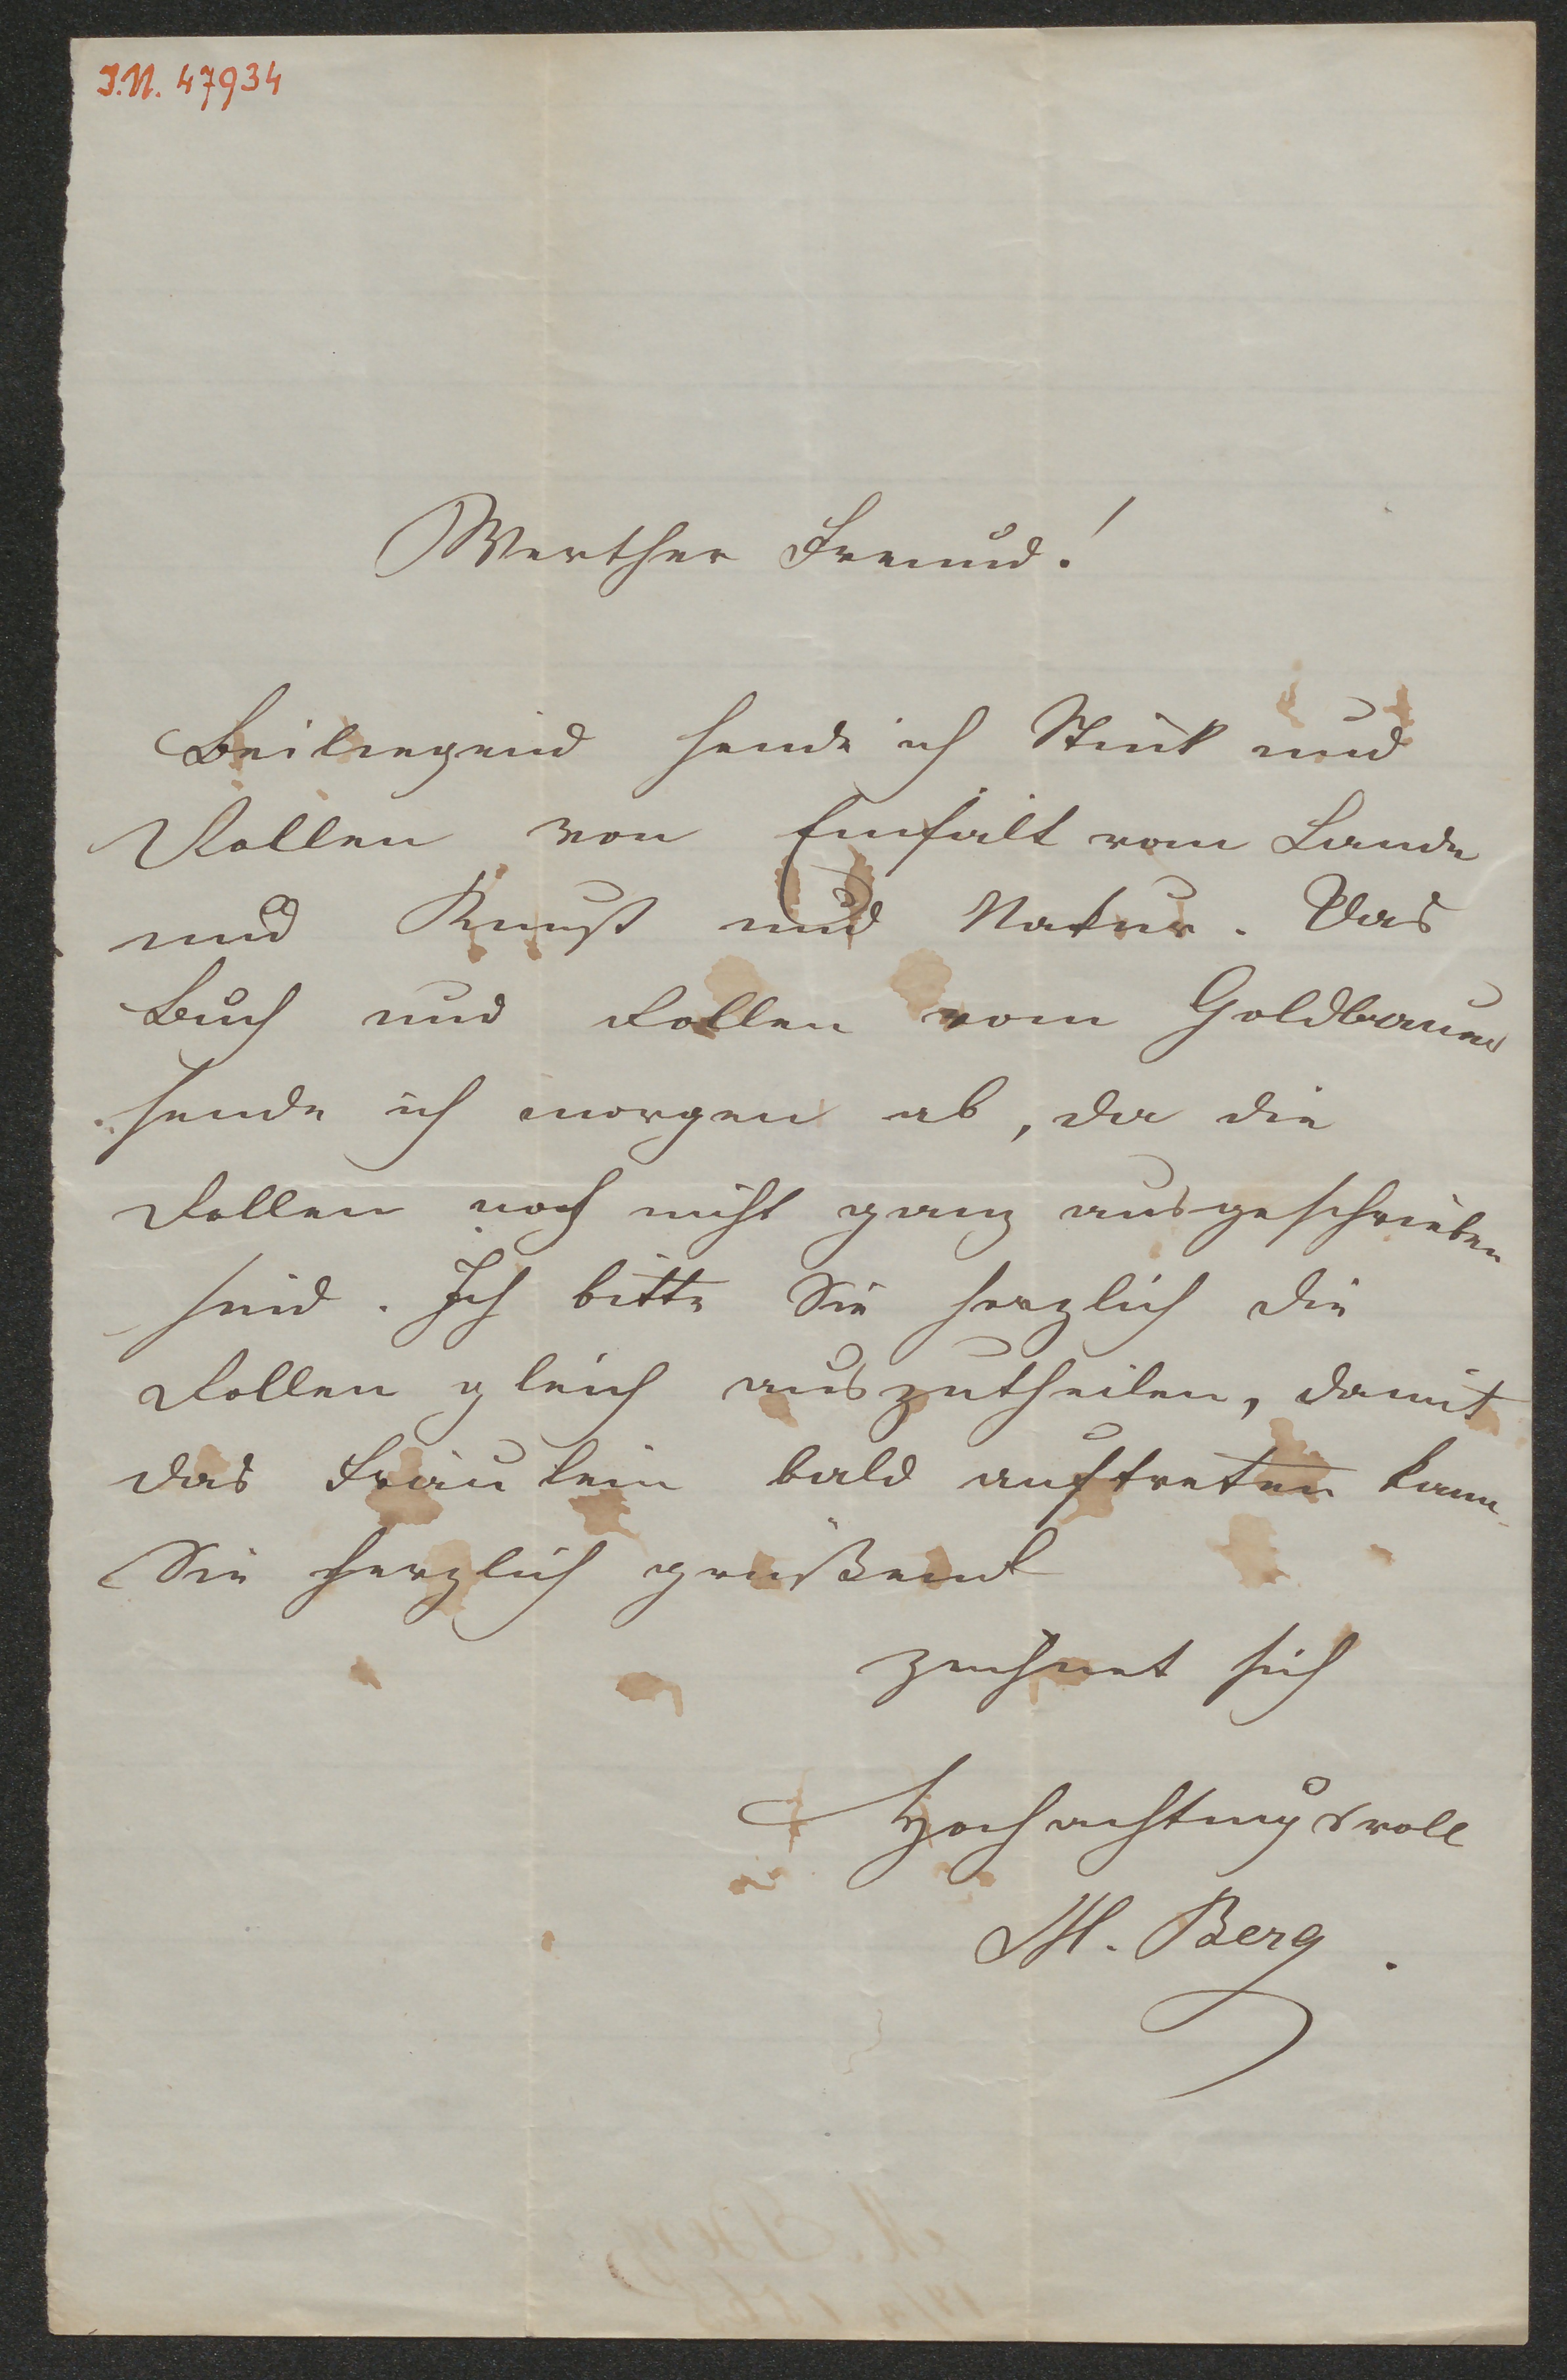 I.N. 47934
Werther Freund!
Beiliegend sende ich Stück und
Rollen von Einfalt vom Lande
und Kunst und Natur. Das
Buch und Rollen vom Goldbauer
sende ich morgen ab, da die
Rollen noch nicht ganz ausgeschrieben
sind. Ich bitte Sie herzlich die
Rollen gleich auszutheilen, damit
das Fräulein bald auftreten kann.
Sie herzlich grüßend
zeichnet sich
Hochachtungsvoll
M. Berg.